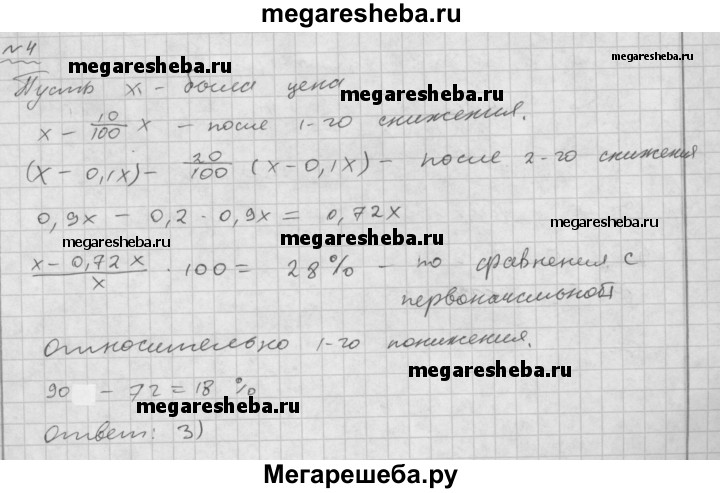 megaresheba.ru
№4
megaresheba.ru
megaresheba.ru
Пусть x - была цена
megaresheba.ru
x - 10/100 x - после 1-го снижения.
(x - 0,1x) - 20/100 (x - 0,1x) - после 2-го снижения
0,9x - 0,2 · 0,9x = 0,72x
megaresheba.ru
megaresheba.ru
megaresheba.ru
x - 0,72x / x · 100 = 28% - по сравнения с
первоначальной
Относительно 1-го понижения.
megaresheba.ru
90 - 72 = 18 %
megaresheba.ru
Ответ: 3)
Мегарешеба.ру